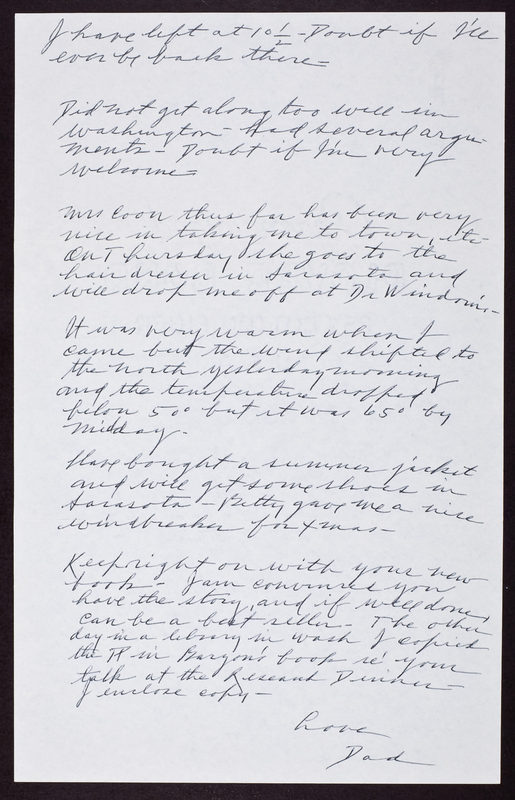 I have left at 10 1/2 - Doubt if I'll
ever be back there -
Did not get along too well in
Washington - Had several argu-
ments - Doubt if I'm very
welcome -
Mrs Coon thus far has been very
nice in taking me to town, etc -
On Thursday she goes to the
hair dresser in Sarasota and
will drop me off at Dr Windom's -
It was very warm when I
came but the wind shifted to
the north yesterday morning
and the temperature dropped
below 50° but it was 65° by
midday -
Have bought a summer jacket
and will get some shoes in
Sarasota - Betty gave me a nice
windbreaker for Xmas -
Keep right on with your new
book - I am convinced you
have the story, and if well done,
can be a best seller - The other
day in a library in Wash I copied
the in book re' your
talk at the Research Dinner -
I enclose copy -
Love
Dad